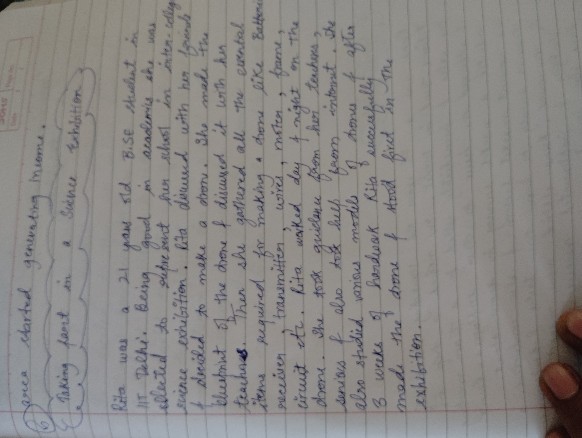 and started generating Income.
Taking part in a Science Exhibition
Rita was a 21 years old B.SE student in
IIT Delhi. Being good in academics she was
selected to represent her school in inter-college
science exhibition. Rita discussed with her friends
& decided to make a drone. She made the
blueprint of the drone & discussed it with her
teachers. Then she gathered all the essential
items required for making a drone like Batteries
receiver, transmitter, wires, motor, frame,
circuit etc. Rita worked day & night on the
drone. She took guidance from her teachers,
seniors & also took help from internet. She
also studied various models of drone & after
3 weeks of hardwork Rita successfully
made the drone & stood first in the
exhibition.